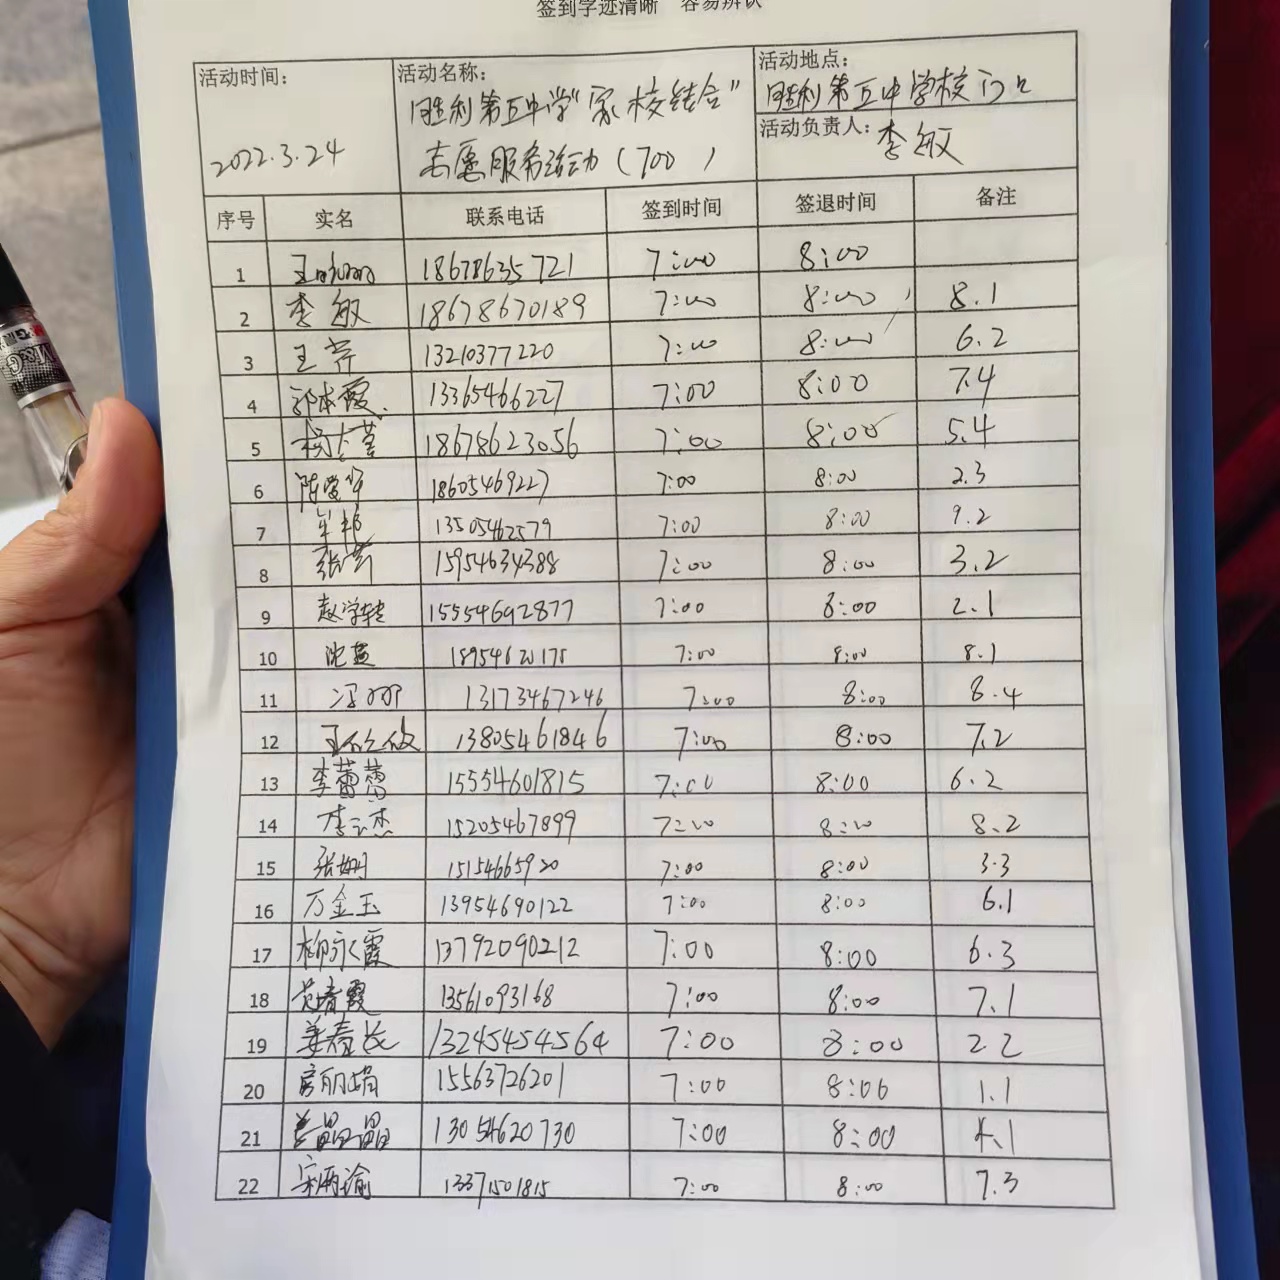 签到字迹清晰 容易辨认
活动时间：
2022.3.24
活动名称：
胜利第五中学“家校结合”
志愿服务活动（700 ）
活动地点：
胜利第五中学校门口
活动负责人：李敏
序号 实名 联系电话 签到时间 签退时间 备注
1 18678635721 7:00 8:00
2 李敏 18678670189 7:00 8:00 8.1
3 王芹 13210377220 7:00 8:00 6.2
4 郭本霞 13365466227 7:00 8:00 7.4
5 18678623056 7:00 8:00 5.4
6 18605469227 7:00 8:00 2.3
7 13505462579 7:00 8:00 9.2
8 15954634388 7:00 8:00 3.2
9 15554692877 7:00 8:00 2.1
10 沈燕 18954620175 7:00 8:00 8.1
11 冯娜 13173467246 7:00 8:00 8.4
12 13805461846 7:00 8:00 7.2
13 李蕾蕾 15554601815 7:00 8:00 6.2
14 李云杰 15205467899 7:00 8:00 8.2
15 张娟 15154665920 7:00 8:00 3.3
16 万金玉 13954690122 7:00 8:00 6.1
17 柳永霞 13792090212 7:00 8:00 6.3
18 13561093168 7:00 8:00 7.1
19 姜春长 13245454564 7:00 8:00 2 2
20 房丽娟 15563726201 7:00 8:00 1.1
21 姜晶晶 13054620730 7:00 8:00 4.1
22 13371501815 7:00 8:00 7.3